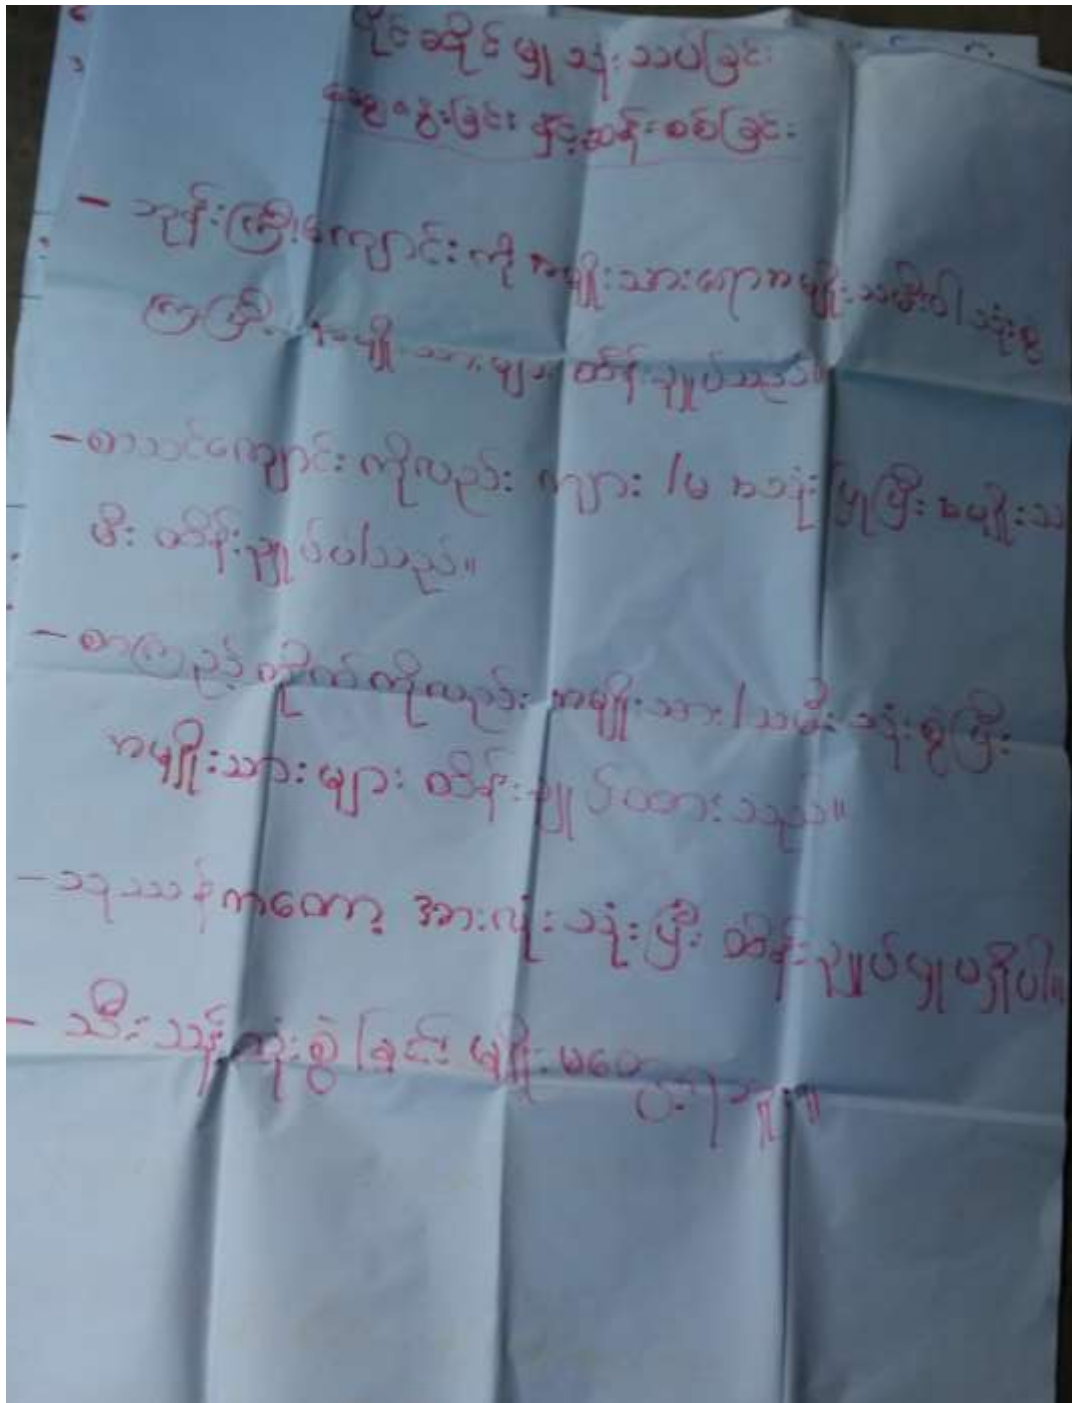 ပိုင်ဆိုင်မှု သုံးသပ်ခြင်း
ဆွေးနွေးခြင်း နှင့်ဆန်းစစ်ခြင်း
- ဘုန်းကြီးကျောင်းကို အမျိုးသားရောအမျိုးသမီးပါ သုံးစွဲ
ကြပြီး အမျိုးသားများ ထိန်းချုပ်သည်။
- စာသင်ကျောင်း ကိုလည်း ကျား/မ အသုံးပြုပြီး အမျိုးသ
မီး ထိန်းချုပ်ပါသည်။
- စာကြည့်တိုက်ကိုလည်း အမျိုးသား/သမီး သုံးစွဲပြီး
အမျိုးသားများ ထိန်းချုပ်ထားသည်။
- သုသာန်ကတော့ အားလုံးသုံးပြီး ထိန်းချုပ်မှုမရှိပါ။
- သီးသန့် သုံးစွဲခြင်းမျိုး မတွေ့ပါဘူး။